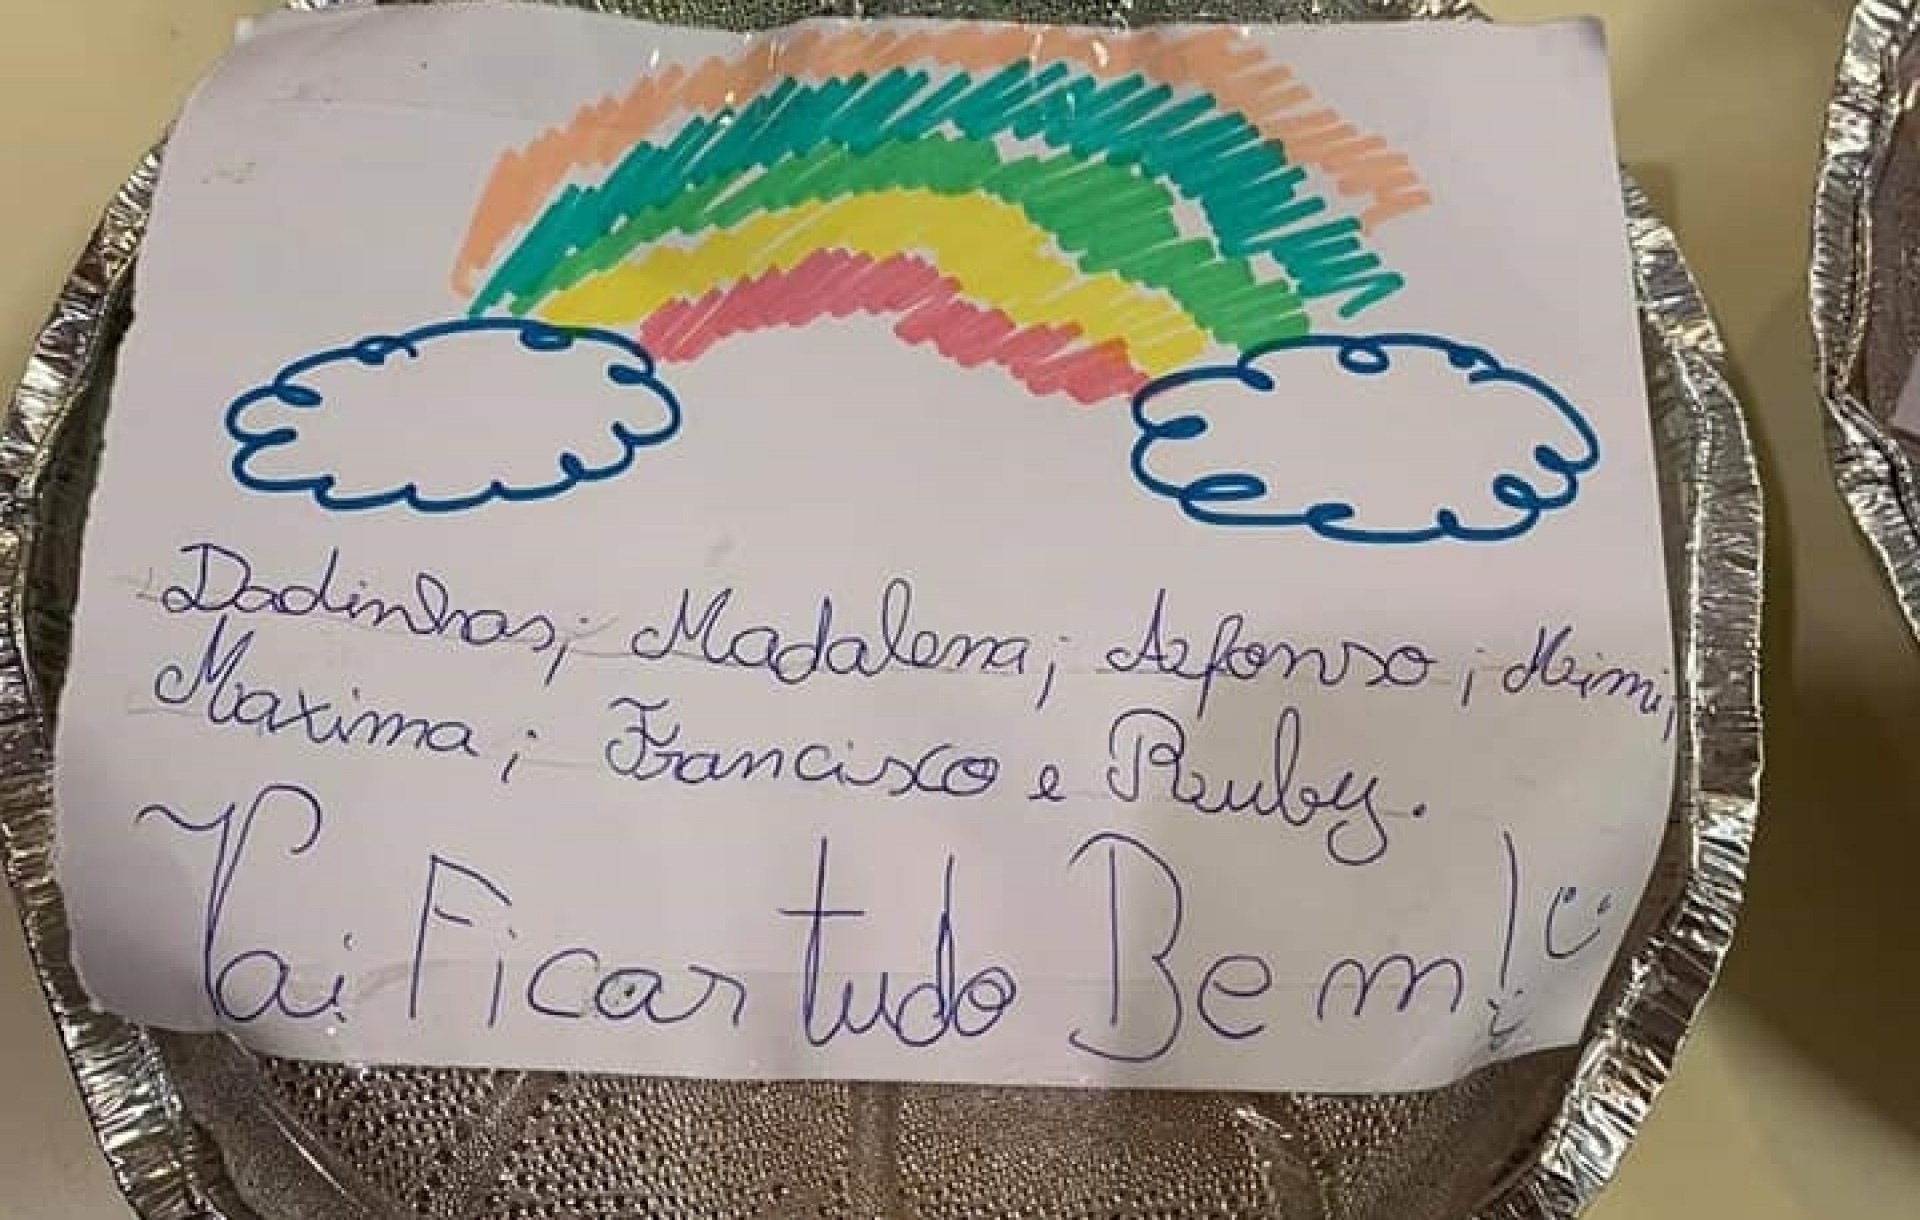 Dadinhas; Madalena; Afonso; Mimi;
Maxima; Francisco e Ruby.
Vai Ficar tudo Bem!